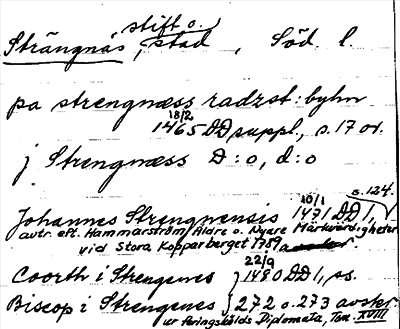 stift o.
Strängnäs, stad, Söd. l.
pa strengnæss radzst: byhn
18/2
1465 DD suppl., s. 17 or.
j Strengnæss D:o, d:o
10/1 s. 124.
Johannes Strengnensis 1471 DD 1,
avtr. eft. Hammarström Äldre o. Nyare Märkvärdigheter
vid Stora Kopparberget 1789
22/9
Coorth i Strengenes } 1480 DD 1, ss.
Biscop i Strengenes } 272 o. 273 avskr.
ur Peringskölds Diplomata, Tom. XVIII